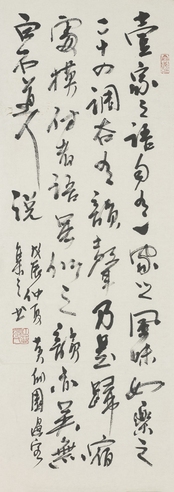 壹家之語自有一家之風味如樂之
二十四調各有韻聲乃是歸宿
處模仿者語雖似之韻亦無
白石道人說
戊辰仲夏